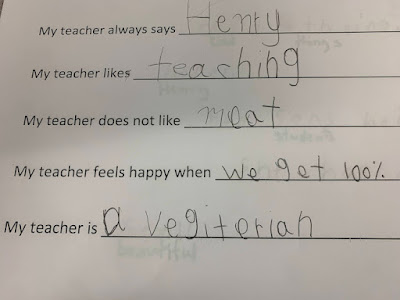 My teacher always says Henry
My teacher likes teaching
My teacher does not like meat
My teacher feels happy when we get 100%
My teacher is a vegiterian